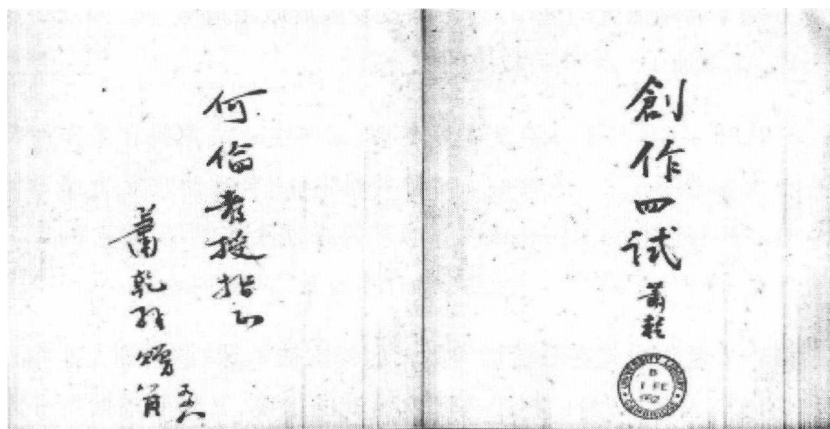 創作四試
蕭乾
UNIVERSITY LIBRARY
1 FE
CAMBRIDGE
何倫教授指正
蕭乾